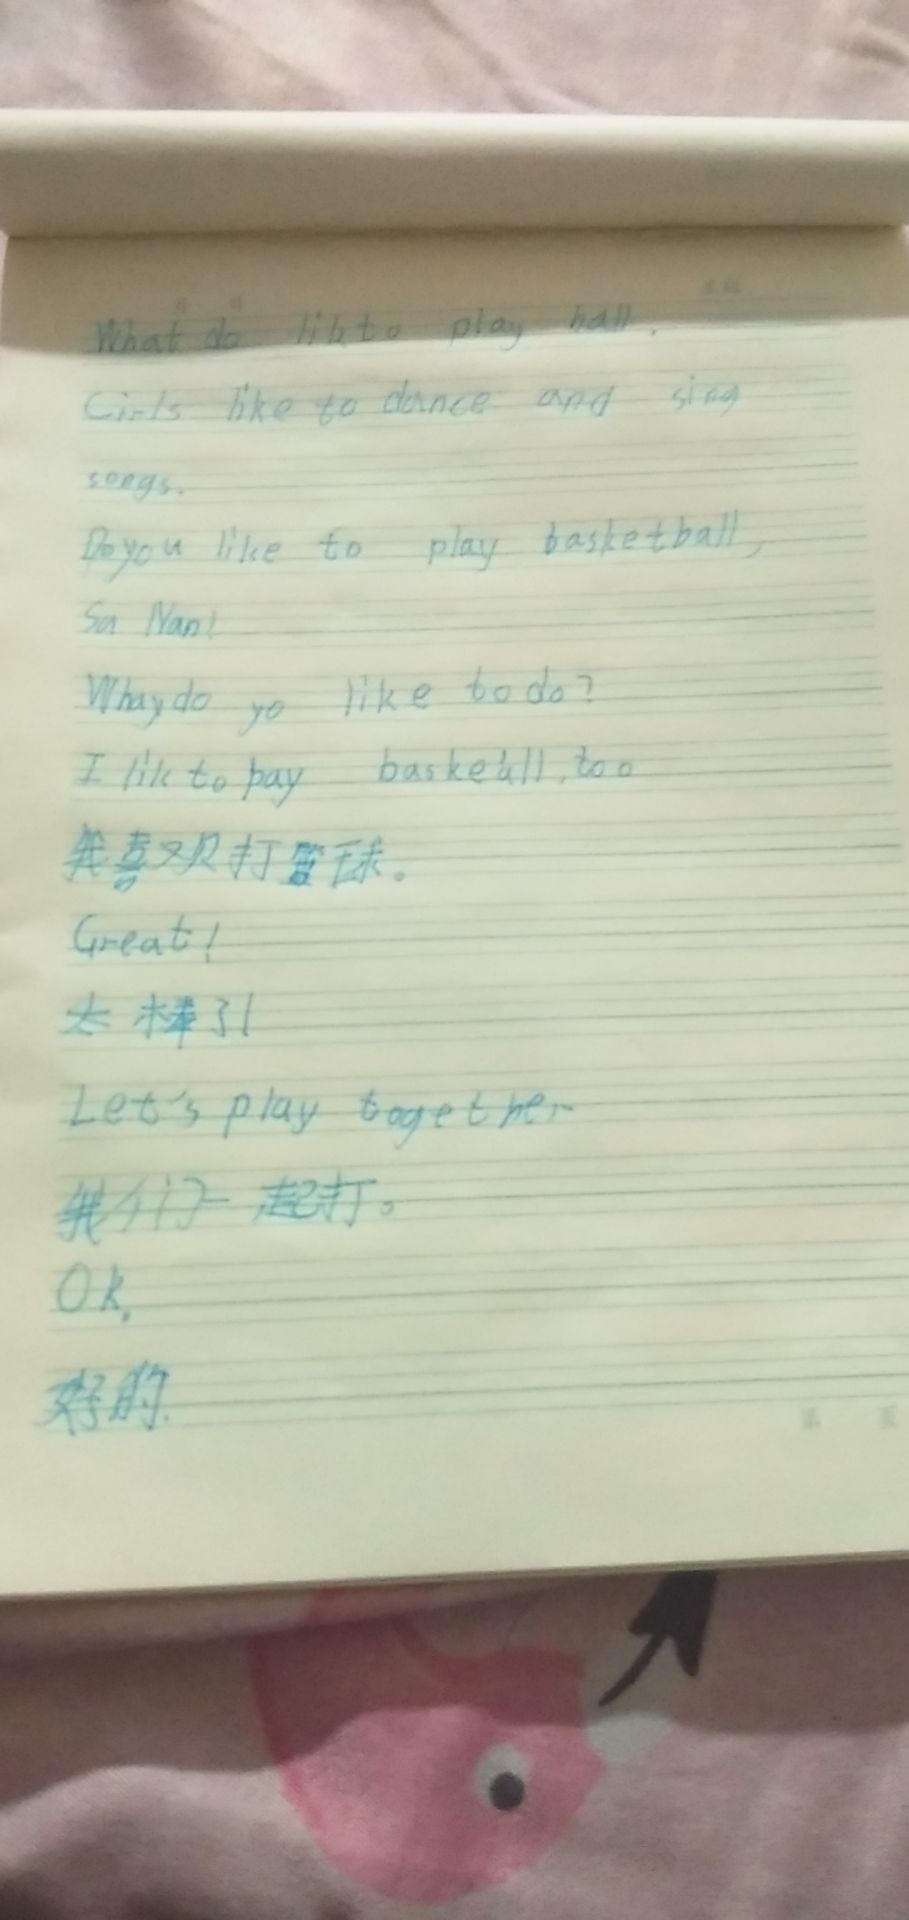 What do likto play ball.
Girls like to dance and sing
songs.
Do you like to play basketball,
Sa Nan!
Whay do yo like to do?
I lik to pay baskeball, too
我喜欢打篮球。
Great!
太棒了!
Let's play together
我们一起打。
Ok.
好的.
第 页